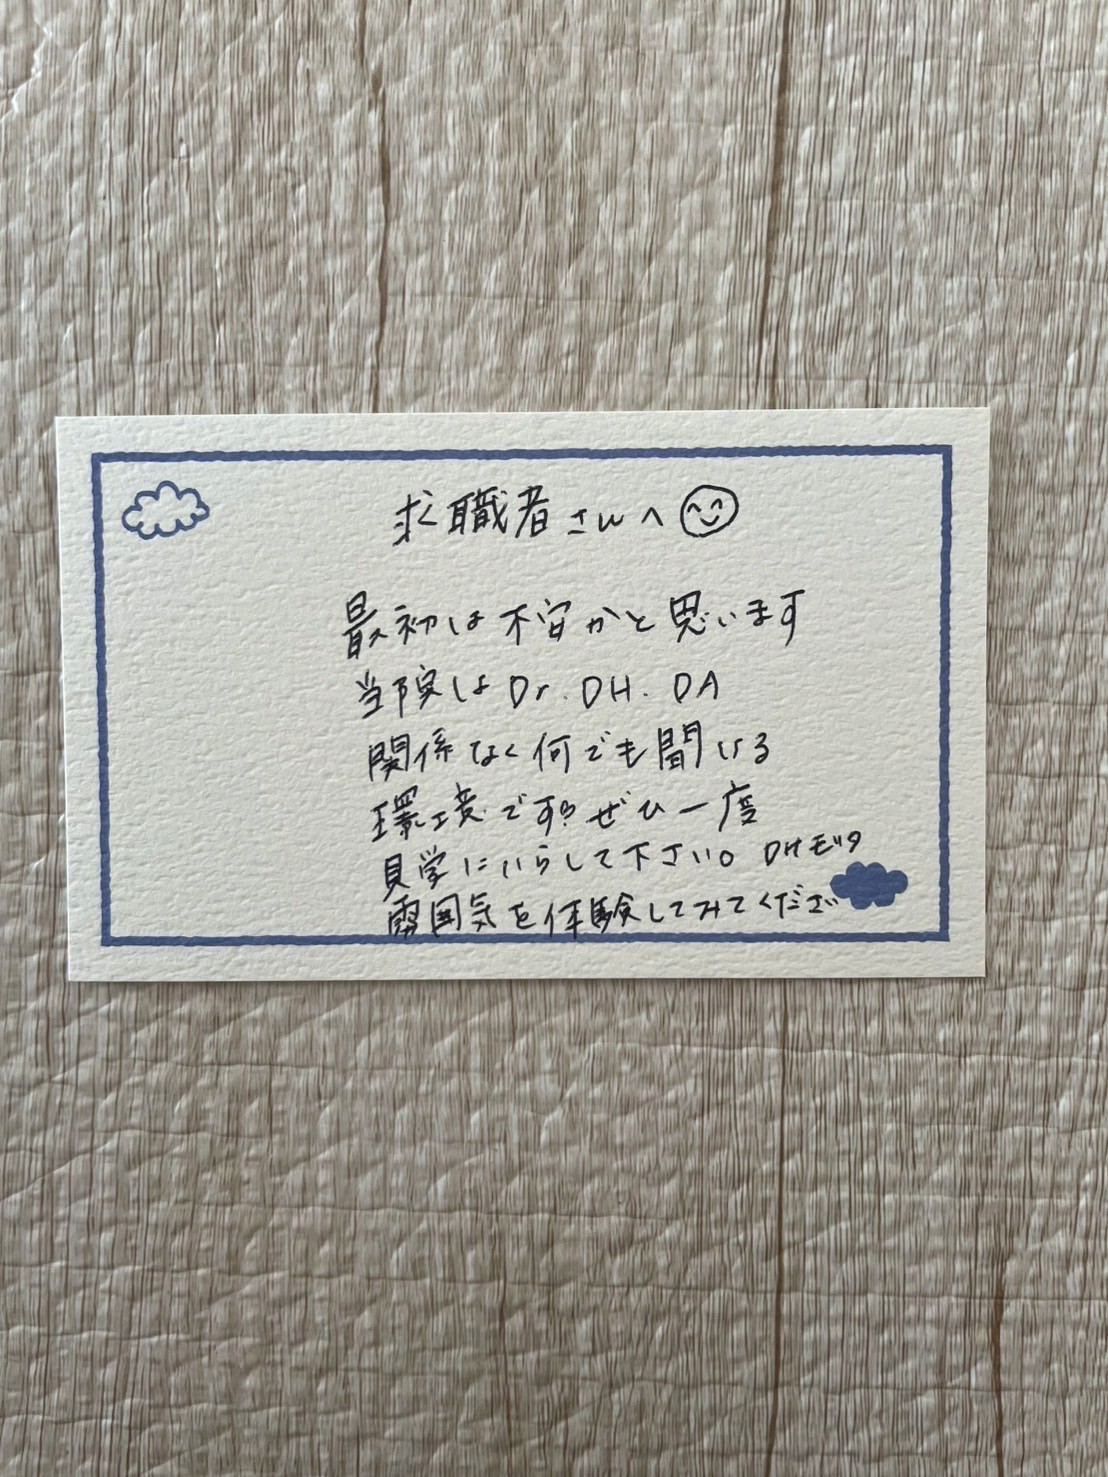 求職者さんへ
最初は不安かと思います
当院は Dr. DH. DA
関係なく何でも聞ける
環境です!! ぜひ一度
見学にいらして下さい。 DH モリタ
雰囲気を体験してみてくださ